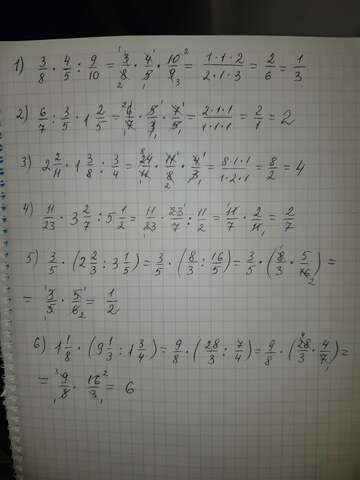 1) 3/8 · 4/5 : 9/10 = 3/8 · 4/5 · 10/9 = 1·1·2/2·1·3 = 2/6 = 1/3
2) 6/7 : 3/5 · 1 2/5 = 6/7 · 5/3 · 7/5 = 2·1·1/1·1·1 = 2/1 = 2
3) 2 2/11 · 1 3/8 : 3/4 = 24/11 · 11/8 · 4/3 = 8·1·1/1·2·1 = 8/2 = 4
4) 11/23 · 3 2/7 : 5 1/2 = 11/23 · 23/7 : 11/2 = 11/7 · 2/11 = 2/7
5) 3/5 · (2 2/3 : 3 1/5) = 3/5 · (8/3 : 16/5) = 3/5 · (8/3 · 5/16) =
= 3/5 · 5/6 = 1/2
6) 1 1/8 · (9 1/3 : 1 3/4) = 9/8 · (28/3 : 7/4) = 9/8 · (28/3 · 4/7) =
= 9/8 · 16/3 = 6